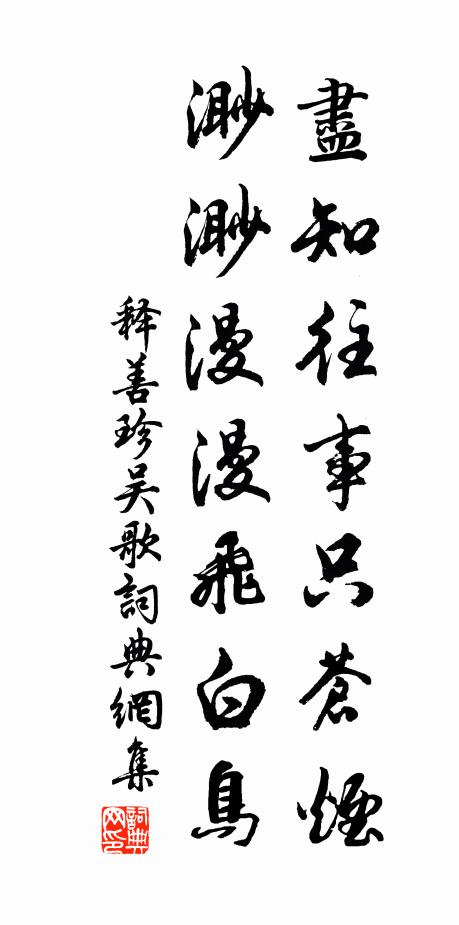 盡知往事只蒼煙
渺渺漫漫飛白鳥
释善珍吴歌詞典網集
詞典网印